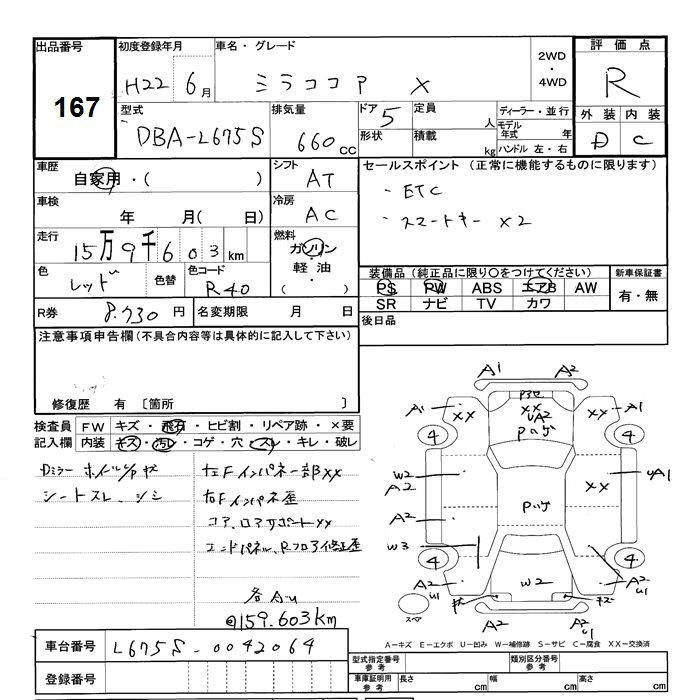 出品番号 初度登録年月 車名・グレード 評価点
167
H22 6月 ミラココア X 2WD・4WD R
型式 排気量 ドア 5 定員 人 ディーラー・並行 外装 内装
DBA-L675S 660 CC 形状 積載 kg モデル年式 年 ハンドル 左・右 D C
車歴 自家用・( ) シフト AT セールスポイント (正常に機能するものに限ります)
・ETC
車検 年 月( 日) 冷房 AC ・スマートキー X2
走行 15万9千603km 燃料 ガソリン・軽油・( )
色 レッド 色替 色コード R40 装備品 (純正品に限り○をつけてください) 新車保証書
PS PW ABS エアB AW 有・無
SR ナビ TV カワ
R券 8.730円 名変期限 月 日 後日品
注意事項申告欄 (不具合内容等は具体的に記入して下さい)
修復歴 有 〔箇所 〕
検査員記入欄 FW キズ・飛石・ヒビ割・リペア跡・×要
内装 キズ・汚レ・コゲ・穴・スレ・キレ・破レ
Dミラー ホイルガヤ 左Fインパネ一部XX
シートスレ、シミ 右Fインパネ歪
コア、ロアサポートXX
エンドパネル、Rフロア修正歪
各AU
@159.603km
A1 A2
A1 XX XX UA2 XX A1
4 パハゲ 4
W2 A2 XX UA1
A2 パハゲ
W3
4 4
A2 U1 W2 A2 U1
A2 A2 U1
スペア
A-キズ E-エクボ U-凹み W-補修跡 S-サビ C-腐食 XX-交換済
車台番号 L675S-0042064
型式指定番号 参考 類別区分番号 参考
登録番号 車庫証明用 参考 長さ cm 幅 cm 高さ cm